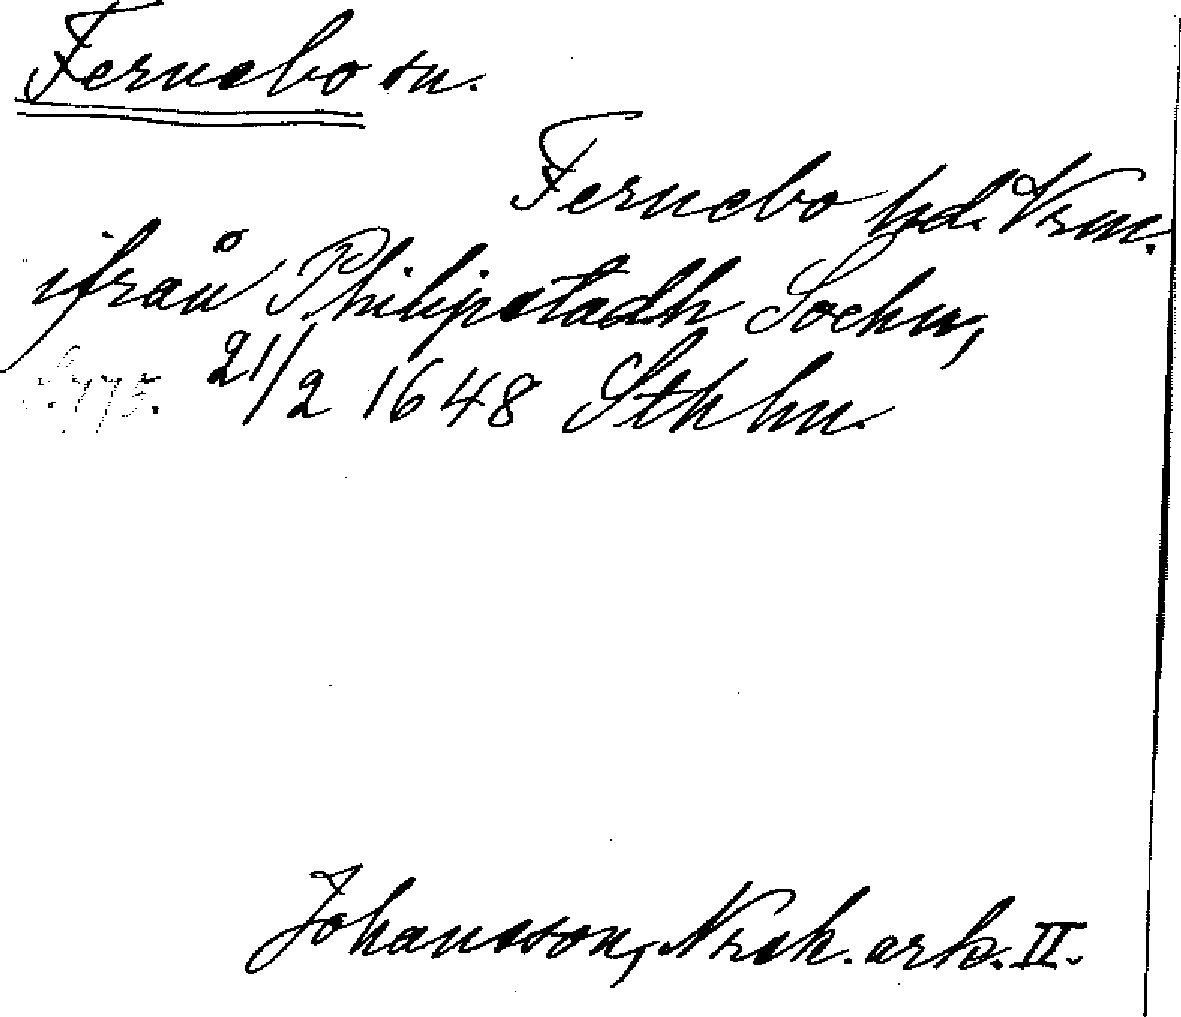 Fernebo sn.
Fernebo hd. Vrm.
ifrån Philipstadh Sochn,
s. 775. 21/2 1648 Sthlm.
Johansson, Norsk. ark. II.